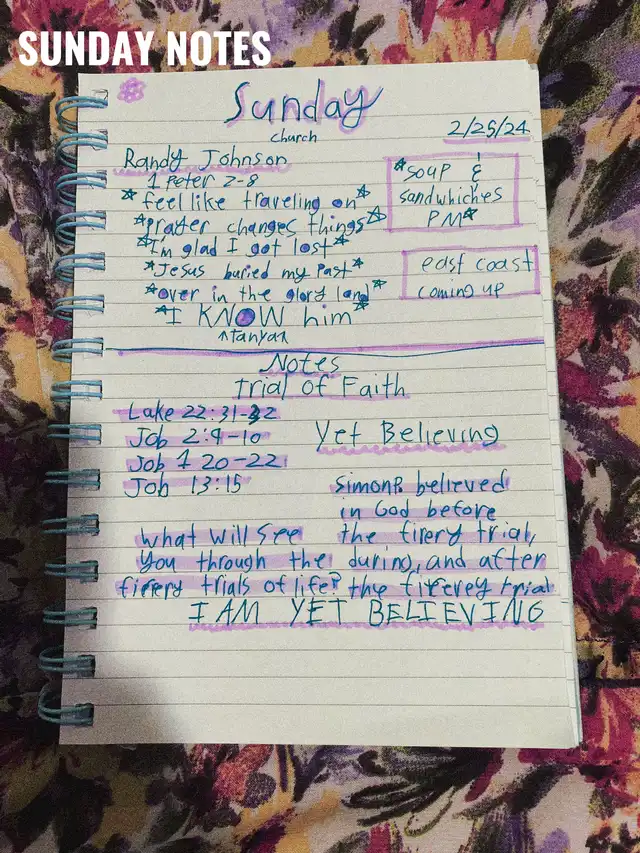 SUNDAY NOTES
Sunday
church
2/25/24
Randy Johnson
1 Peter 2-8
*feel like traveling on*
*prayer changes things*
*I'm glad I got lost*
*Jesus buried my past*
*over in the glory land*
*I KNOW him*
^tanya^
*soup &
sandwhiches
PM*
east coast
coming up
Notes
trial of Faith
Luke 22:31-32
Job 2:9-10
Job 1 20-22
Job 13:15
Yet Believing
Simon P. believed
in God before
the firery trial,
during, and after
the firerey trial
what will see
you through the
firery trials of life?
I AM YET BELIEVING